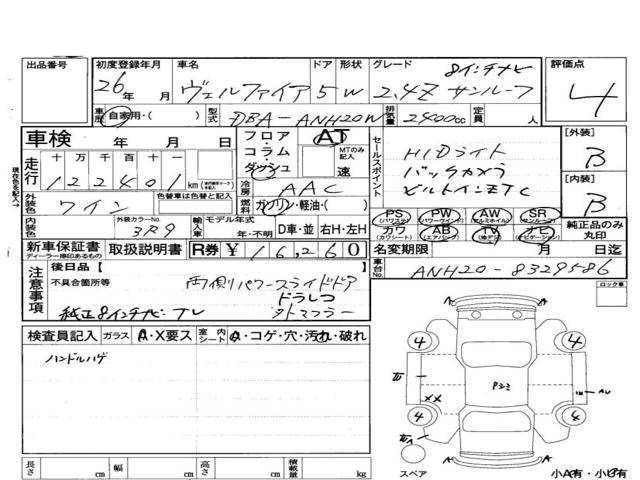 出品番号
初度登録年月
26年 月
車名
ヴェルファイア
ドア
5
形状
W
グレード
8インチナビ
2.4Z サンルーフ
評価点
4
車歴
自家用・( )
型式
DBA-ANH20W
排気量
2400cc
定員
人
車検 年 月 日
フロア・コラム・ダッシュ
AT
MTのみ記入
速
セールスポイント
HIDライト
バックカメラ
ビルトインETC
[外装]
B
[内装]
B
現在色を記入→
走行
十 万 千 百 十 一
122401 km
冷房
AAC
燃料
ガソリン・軽油・( )
外装色
ワイン
色替車は色替と記入
内装色
外装カラーNo.
3R9
輸入車
モデル年式
年・不明
D車・並
右H・左H
PS
(パワステ)
PW
(パワーウインド)
AW
(アルミホイル)
SR
(サンルーフ)
カワ
(本革シート)
AB
(エアバッグ)
TV
ナビ
(ナビゲーション)
純正品のみ丸印
新車保証書
ディーラー捺印あるもの
取扱説明書
R券 ¥16,260
名変期限 月 日迄
注意事項
後日品 [ ]
不具合箇所等
両側パワースライドドア
純正8インチナビ TV
車台No.
ANH20-8329586
ロック車
検査員記入
ガラス
A・X要ス
室内シート
・コゲ・穴・汚れ・破れ
ハンドルハゲ
A
A
4
4
4
4
XX
Pシミ
AU
A
A
スペア
小A有・小ピ有
長さ cm
幅 cm
高さ cm
積載量 kg